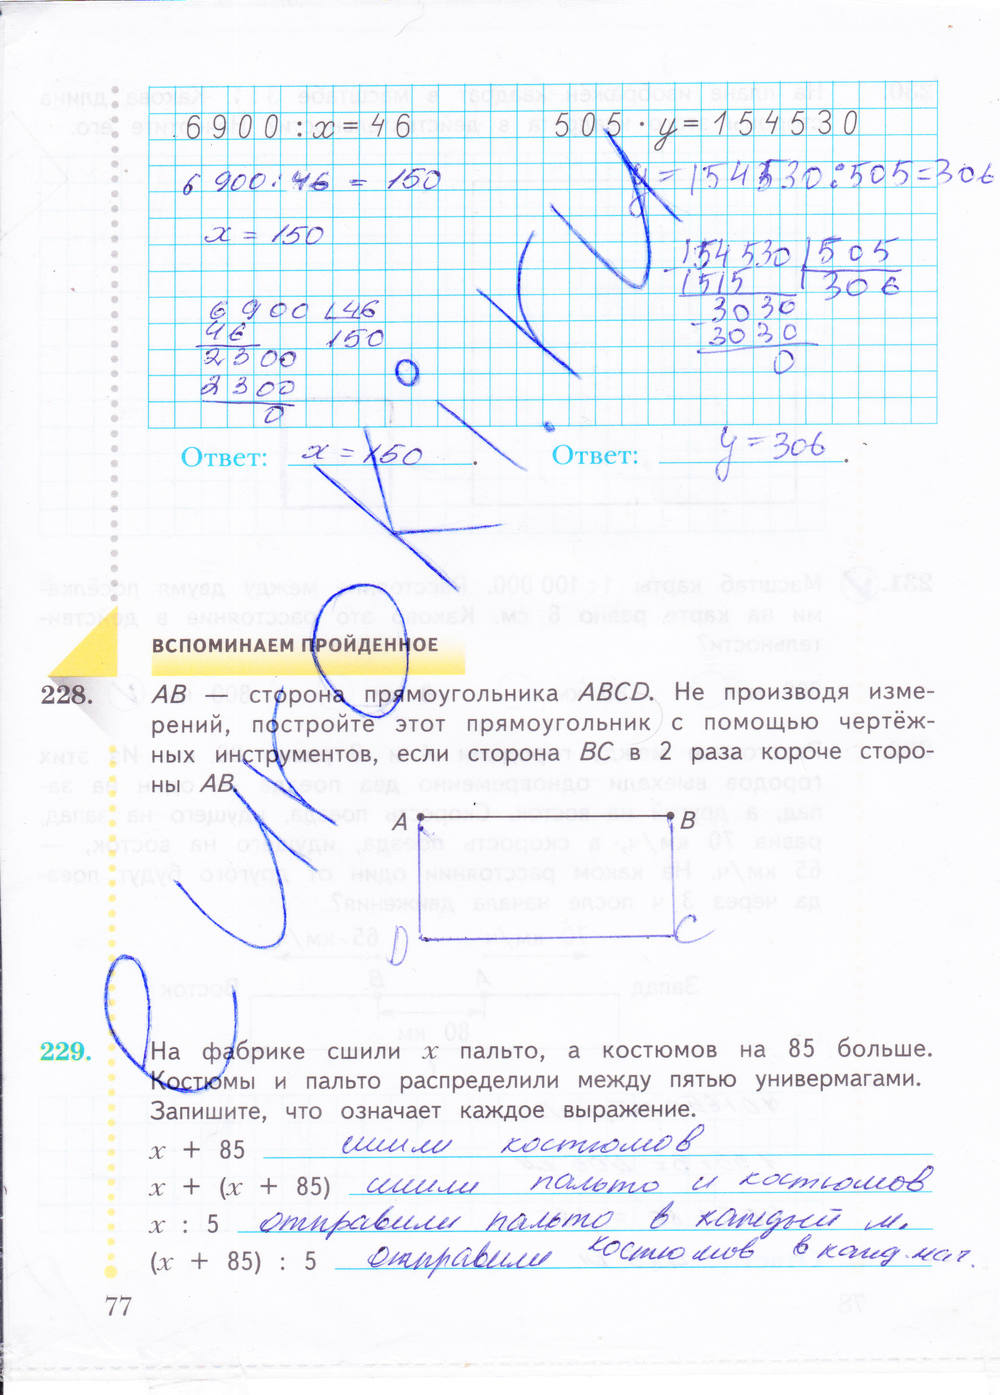 6900 : x = 46 505 · y = 154530
6 900 : 46 = 150 y = 154530 : 505 = 306
x = 150
154530 505
1515 306
3030
3030
0
6900 46
46 150
2300
2300
0
Ответ: x = 150 . Ответ: y = 306 .
ВСПОМИНАЕМ ПРОЙДЕННОЕ
228. AB — сторона прямоугольника ABCD. Не производя изме-
рений, постройте этот прямоугольник с помощью чертёж-
ных инструментов, если сторона BC в 2 раза короче сторо-
ны AB.
A B
D C
229. На фабрике сшили x пальто, а костюмов на 85 больше.
Костюмы и пальто распределили между пятью универмагами.
Запишите, что означает каждое выражение.
x + 85 сшили костюмов
x + (x + 85) сшили пальто и костюмов
x : 5 отправили пальто в каждый м.
(x + 85) : 5 отправили костюмов в кажд.маг.
77
e-uroki.ru